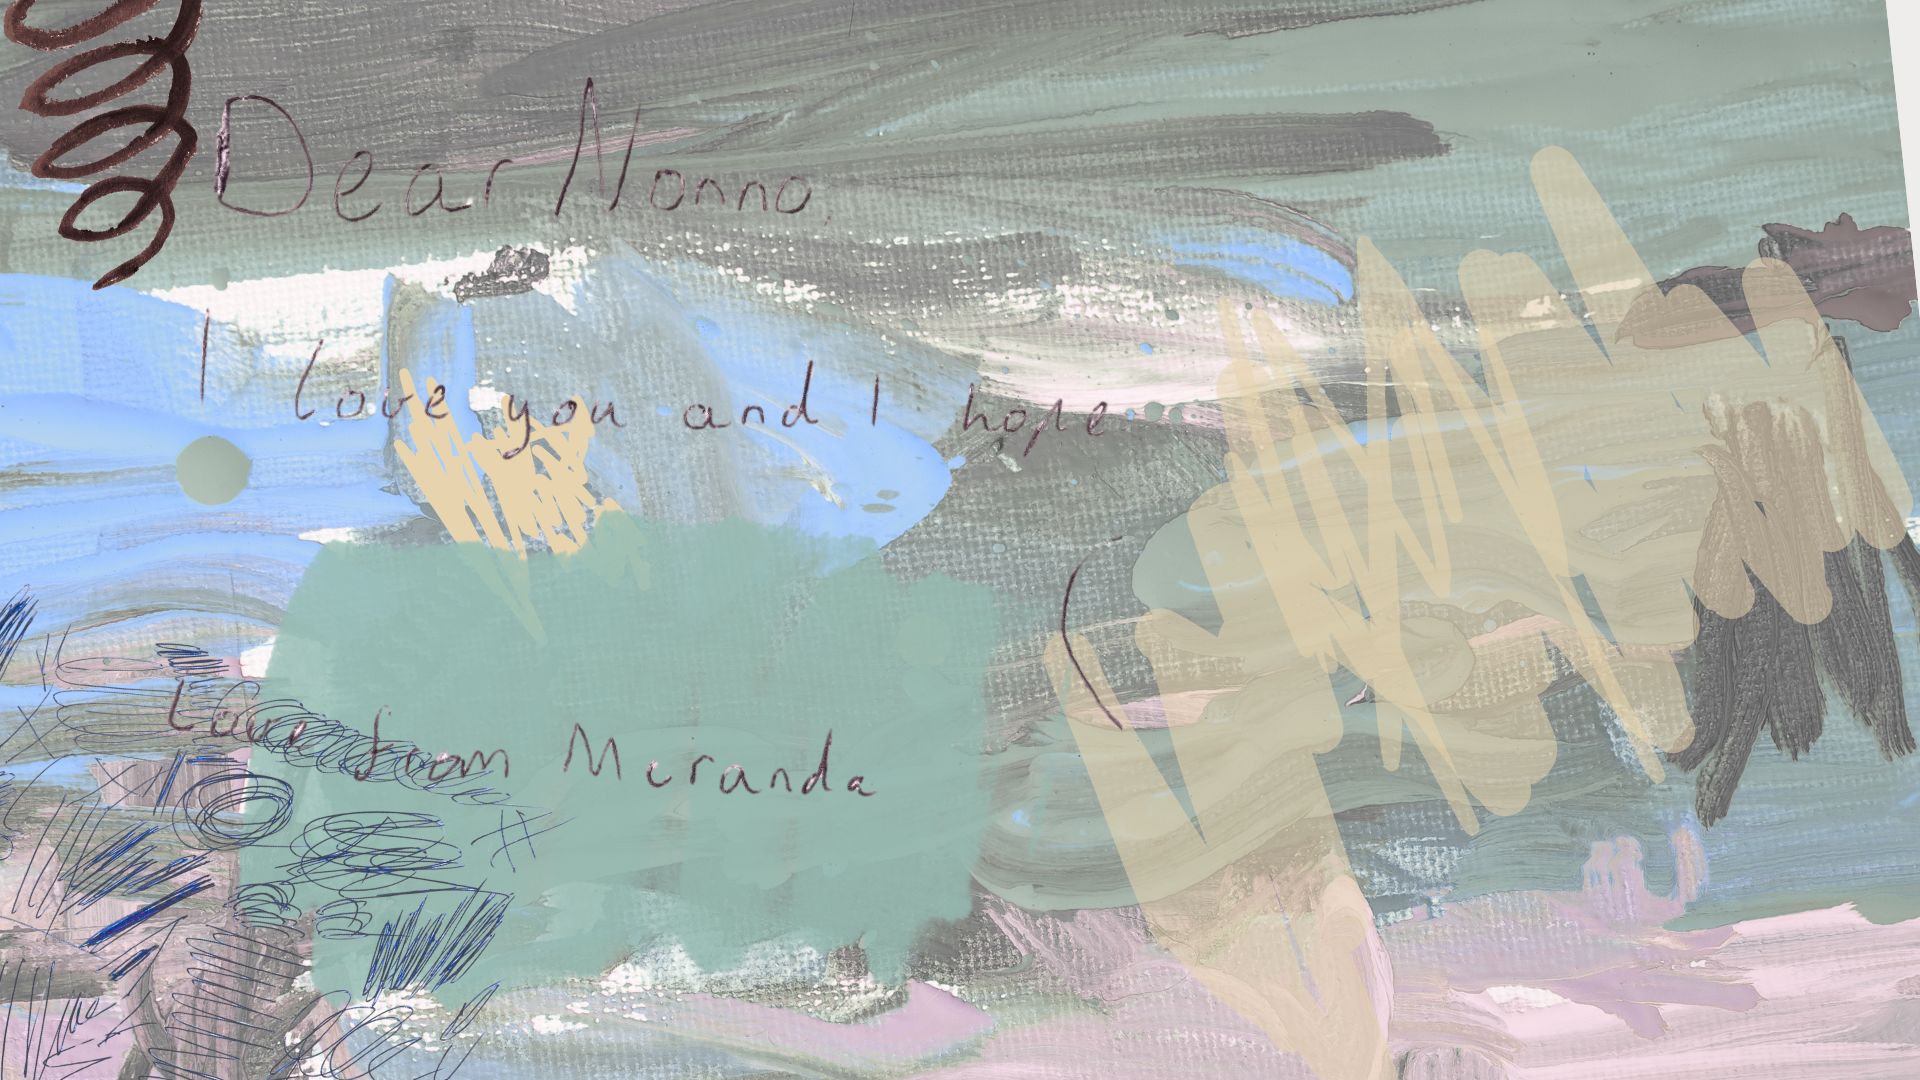 Dear Nonno,
I love you and I hope
Love from Meranda